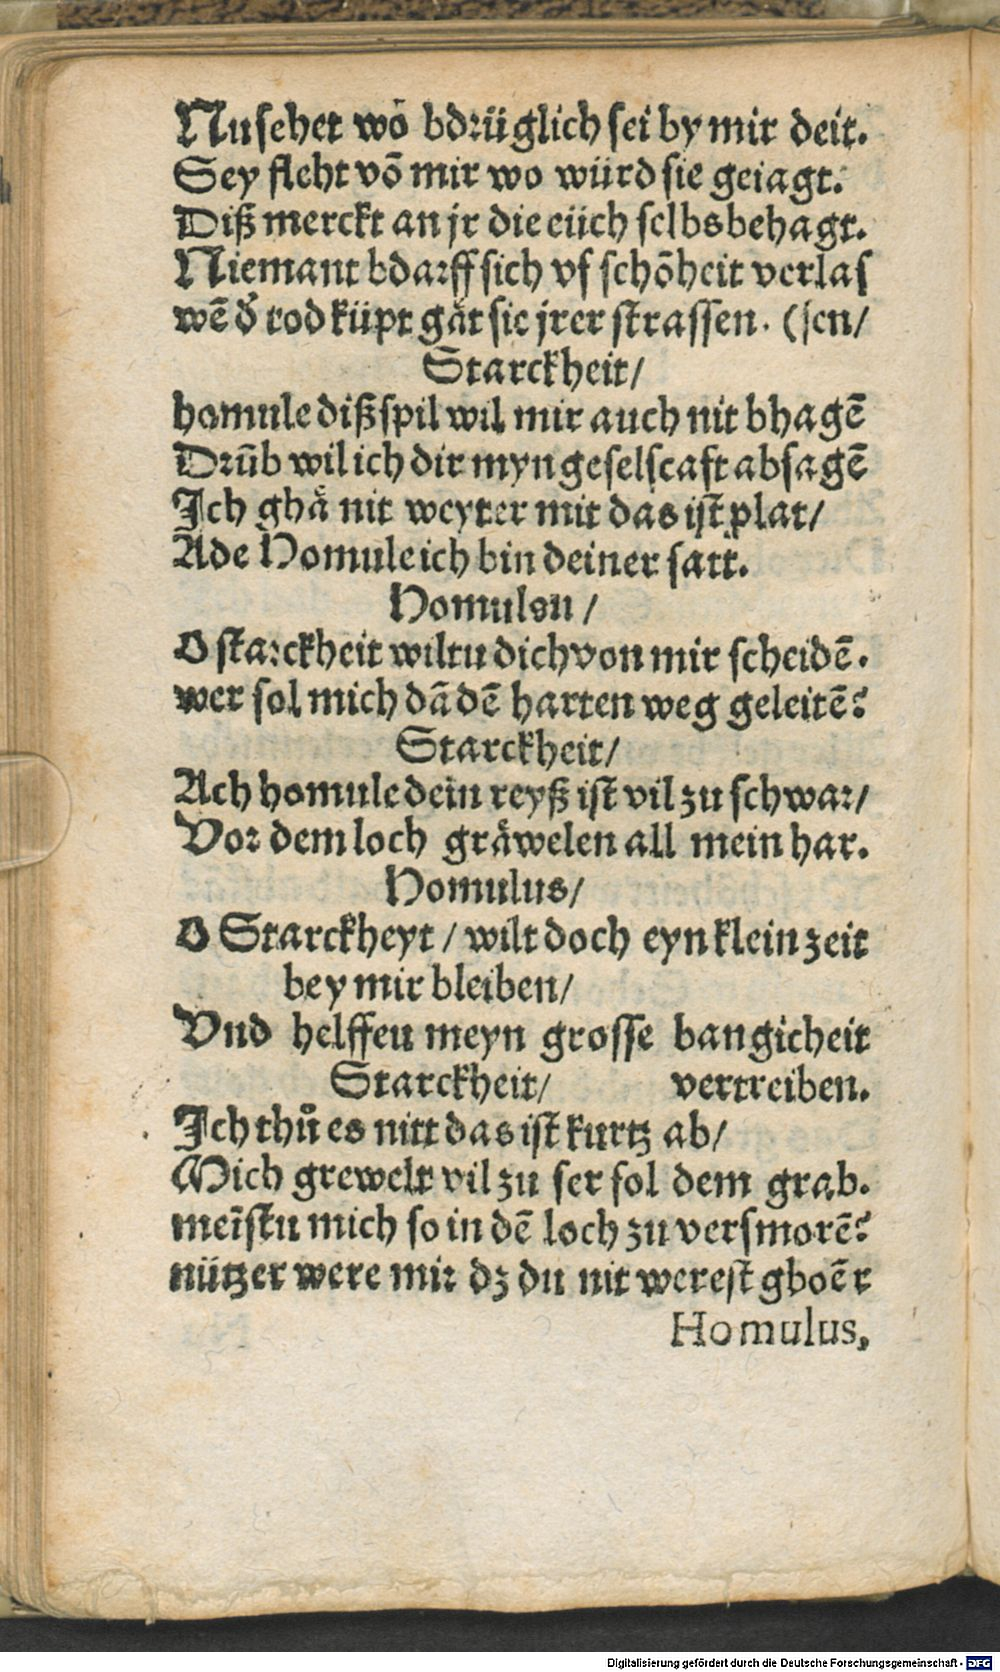 Nu sehet wo bdrüglich sei by mir deit.
Sey fleht võ mir wo würd sie geiagt.
Diß merckt an jr die eüch selbs behagt.
Niemant bdarff sich vf schõheit verlas
wẽ d̕ tod küpt gåt sie jrer strassen. (sen/
Starckheit/
homule diß spil wil mir auch nit bhagẽ
Drũb wil ich dir myn geselscaft absagẽ
Ich ghå nit weyter mit das ist plat/
Ade Homule ich bin deiner satt.
Homulsu /
O starckheit wiltu dich von mir scheidẽ.
wer sol mich dã dẽ harten weg geleitẽ?
Starckheit/
Ach homule dein reyß ist vil zu schwar/
Vor dem loch gråwelen all mein har.
Homulus/
O Starckheyt / wilt doch eyn klein zeit
bey mir bleiben/
Vnd helffeu meyn grosse bangicheit
Starckheit/ vertreiben.
Ich thů es nitt das ist kurtz ab/
Mich grewelt vil zu ser fol dem grab.
meĩstu mich so in dẽ loch zu versmorẽ?
nützer were mir dz du nit werest gboẽr
Homulus,
Digitalisierung gefördert durch die Deutsche Forschungsgemeinschaft - DFG